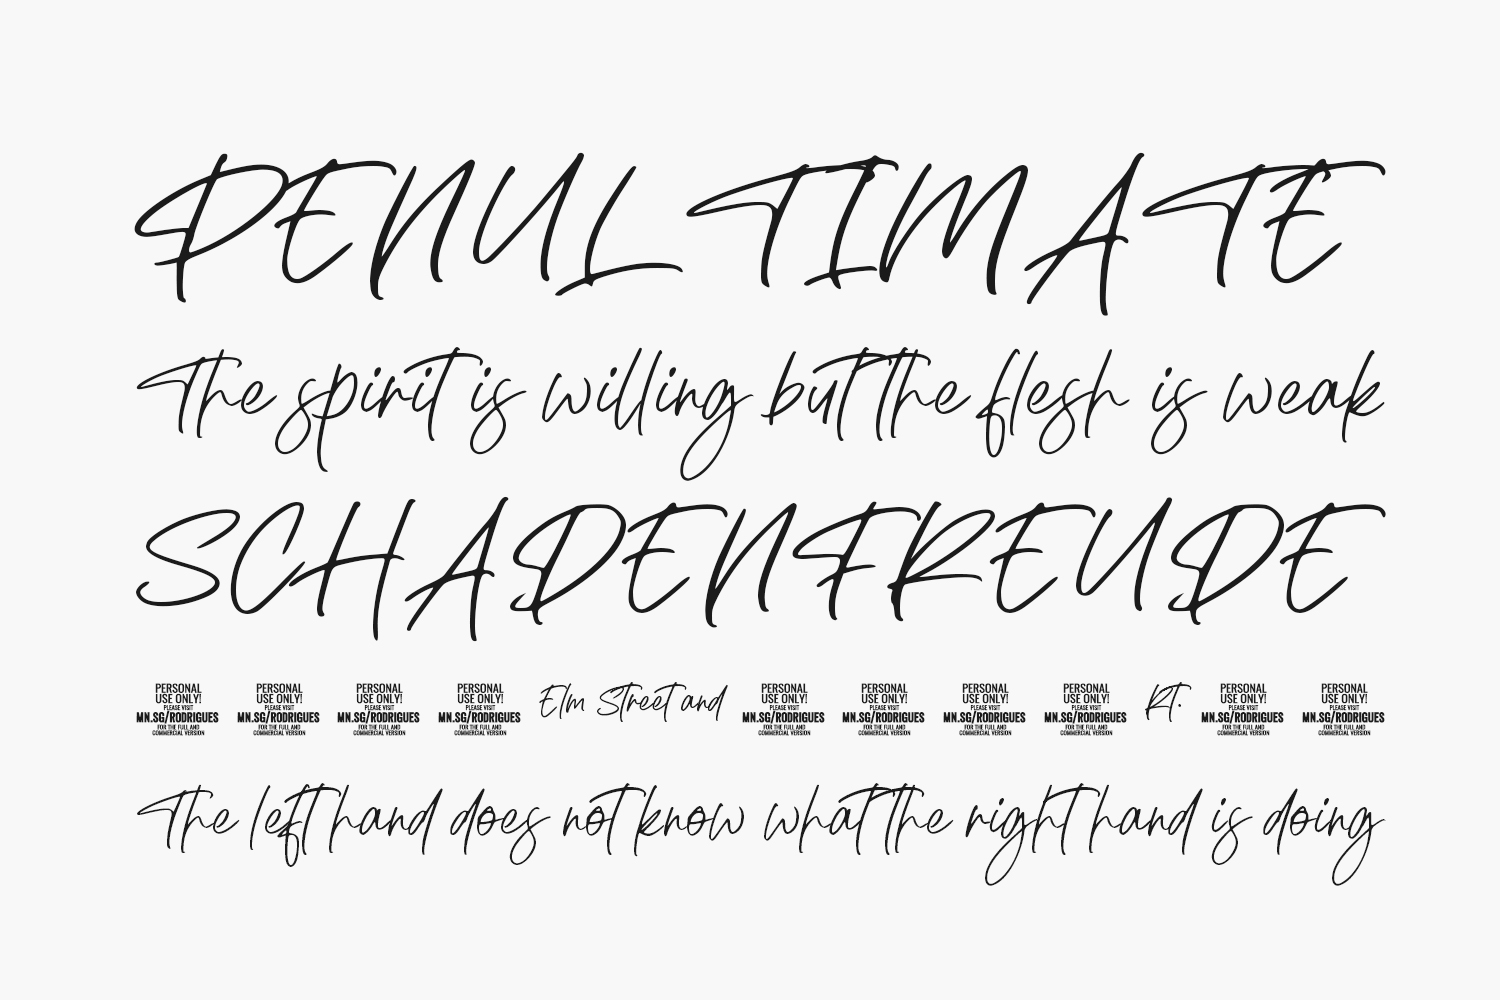 PENULTIMATE
The spirit is willing but the flesh is weak
SCHADENFREUDE
PERSONAL USE ONLY! PLEASE VISIT MN.SG/RODRIGUES FOR THE FULL AND COMMERCIAL VERSION PERSONAL USE ONLY! PLEASE VISIT MN.SG/RODRIGUES FOR THE FULL AND COMMERCIAL VERSION PERSONAL USE ONLY! PLEASE VISIT MN.SG/RODRIGUES FOR THE FULL AND COMMERCIAL VERSION PERSONAL USE ONLY! PLEASE VISIT MN.SG/RODRIGUES FOR THE FULL AND COMMERCIAL VERSION Elm Street and PERSONAL USE ONLY! PLEASE VISIT MN.SG/RODRIGUES FOR THE FULL AND COMMERCIAL VERSION PERSONAL USE ONLY! PLEASE VISIT MN.SG/RODRIGUES FOR THE FULL AND COMMERCIAL VERSION PERSONAL USE ONLY! PLEASE VISIT MN.SG/RODRIGUES FOR THE FULL AND COMMERCIAL VERSION PERSONAL USE ONLY! PLEASE VISIT MN.SG/RODRIGUES FOR THE FULL AND COMMERCIAL VERSION Rt. PERSONAL USE ONLY! PLEASE VISIT MN.SG/RODRIGUES FOR THE FULL AND COMMERCIAL VERSION PERSONAL USE ONLY! PLEASE VISIT MN.SG/RODRIGUES FOR THE FULL AND COMMERCIAL VERSION
The left hand does not know what the right hand is doing